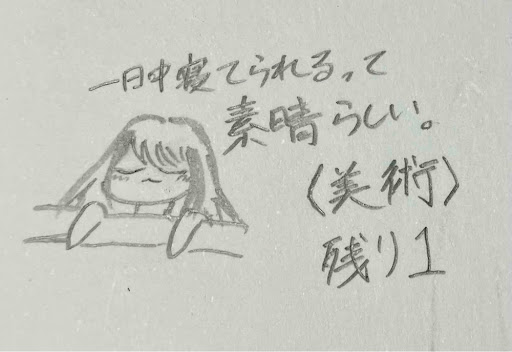 一日中寝てられるって
素晴らしい。
(美術)
残り1